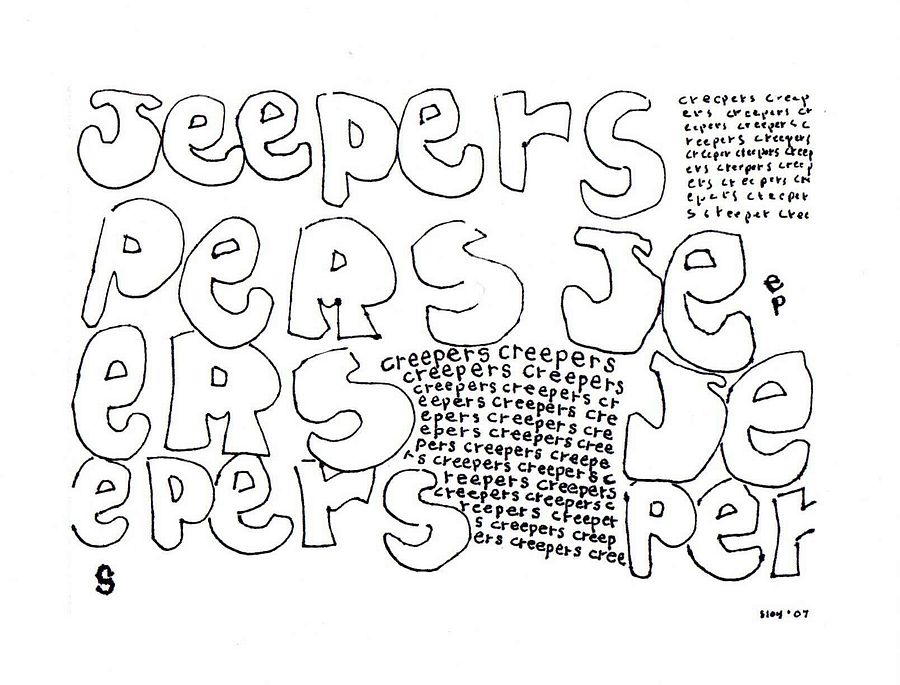 Jeepers
creepers creep
ers creepers cr
eepers creepers c
reepers creepers
creeper cleepers creep
ers creepers creep
ers creepers cre
epers creeper
s creeper cree
peRs Je
ep
eRs
Je
creepers creepers
creepers creepers
creepers creepers cr
eepers creepers cre
epers creepers cre
epers creepers cree
pers creepers creepe
rs creepers creepers c
reepers creepers
creepers creepers c
reepers creeper
s creepers creep
ers creepers cree
epers
per
s
Sloy '07